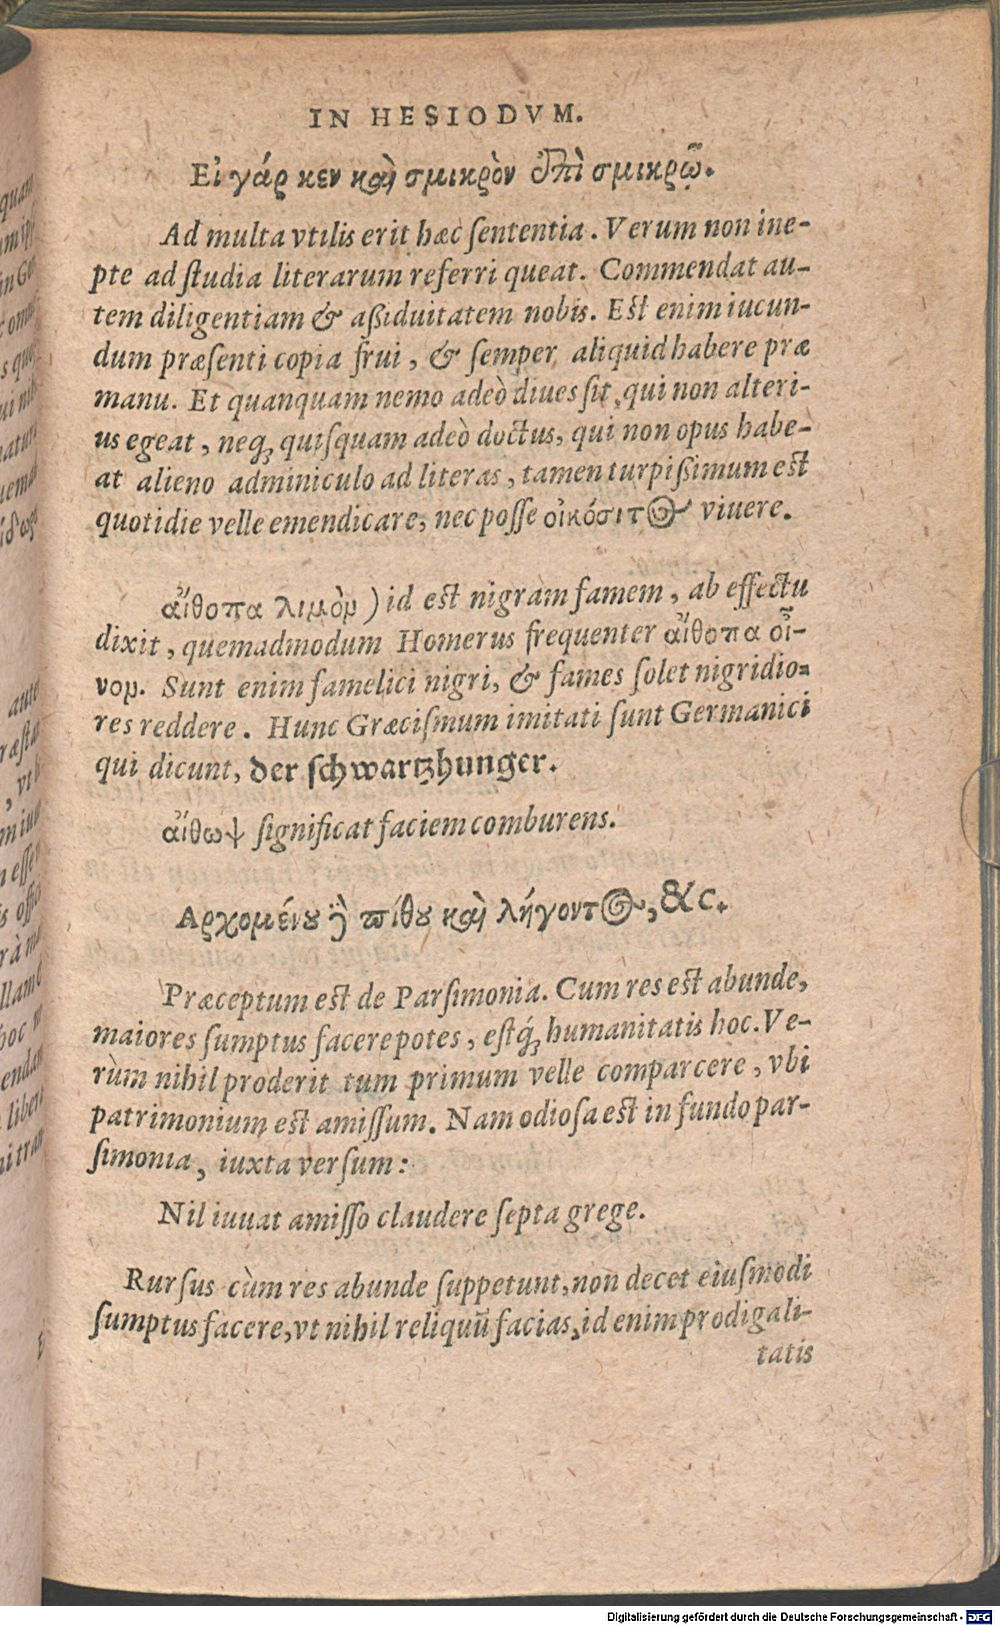 IN HESIODVM.
Εἰ γάρ κεν καὶ σμικρὸν ἐπὶ σμικρῷ.
Ad multa vtilis erit hæc ſententia. Verum non ine-
pte ad ſtudia literarum referri queat. Commendat au-
tem diligentiam & aßiduitatem nobis. Eſt enim iucun-
dum præſenti copia frui, & ſemper aliquid habere præ
manu. Et quanquam nemo adeò diues ſit, qui non alteri-
us egeat, neq; quiſquam adeò doctus, qui non opus habe-
at alieno adminiculo ad literas, tamen turpißimum eſt
quotidie velle emendicare, nec poſſe οἰκόσιτος viuere.
αἴθοπα λιμὸν) id eſt nigram famem, ab effectu
dixit, quemadmodum Homerus frequenter αἴθοπα οἶ-
νον. Sunt enim famelici nigri, & fames ſolet nigridio-
res reddere. Hunc Græciſmum imitati ſunt Germanici
qui dicunt, der ſchwartzhunger.
αἴθωψ ſignificat faciem comburens.
Αρχομένου δὲ πίθου καὶ λήγοντος, &c.
Præceptum eſt de Parſimonia. Cum res eſt abunde,
maiores ſumptus facere potes, eſtq́; humanitatis hoc. Ve-
rùm nihil proderit tum primum velle comparcere, vbi
patrimonium eſt amiſſum. Nam odioſa eſt in fundo par-
ſimonia, iuxta verſum:
Nil iuuat amiſſo claudere ſepta grege.
Rurſus cùm res abunde ſuppetunt, non decet eiuſmodi
ſumptus facere, vt nihil reliquū facias, id enim prodigali-
tatis
Digitalisierung gefördert durch die Deutsche Forschungsgemeinschaft - DFG